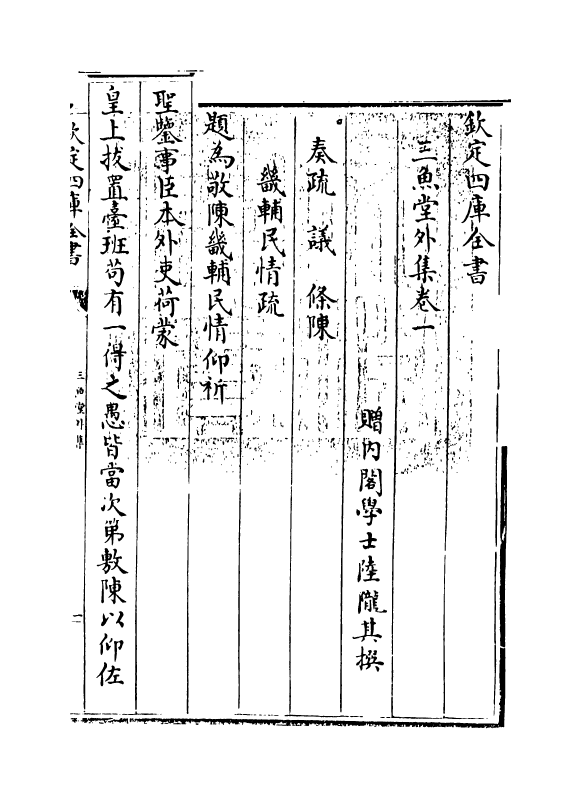 欽定四庫全書
三魚堂外集卷一
贈內閣學士陸隴其撰
奏疏 議 條陳
畿輔民情疏
題為敬陳畿輔民情仰祈
聖鑒事臣本外吏荷蒙
皇上拔置臺班苟有一得之愚皆當次第敷陳以仰佐
欽定四庫全書
三魚堂外集